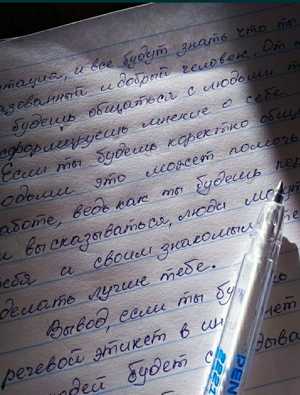 тация, и все будут знать что ты
азованный и добрый человек. От
будешь общаться с людьми
сформируешь мнение о себе.
Если ты будешь коректно общ
юдьми это может помочь
аботе, ведь как ты будешь
и высказываться, люди могут
ебя и своим знакомым
делать лучше тебе.
Вывод, если ты бу
речевой этикет в ин нет
людей будет с дыва
PEN